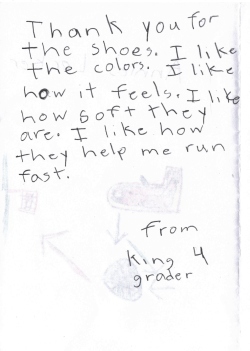 Thank you for
the shoes. I like
the colors. I like
how it feels. I like
how soft they
are. I like how
they help me run
fast.
From
King 4
grader